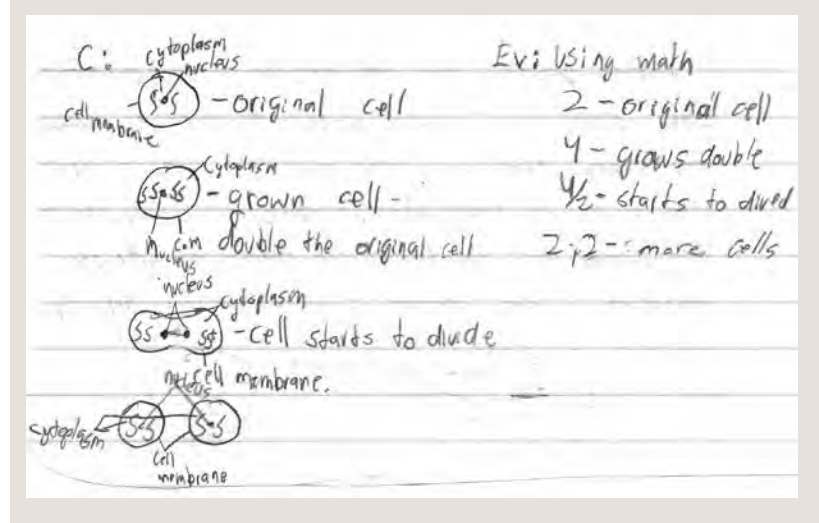 C:
cytoplasm
nucleus
cell membrane
- original cell
cytoplasm
- grown cell -
double the original cell
nucleus
c.m
nucleus
cytoplasm
- cell starts to divide
cell membrane.
nucleus
cytoplasm
cell membrane
Ev: Using math
2 - original cell
4 - grows double
4/2 - starts to dived
2;2 - more cells